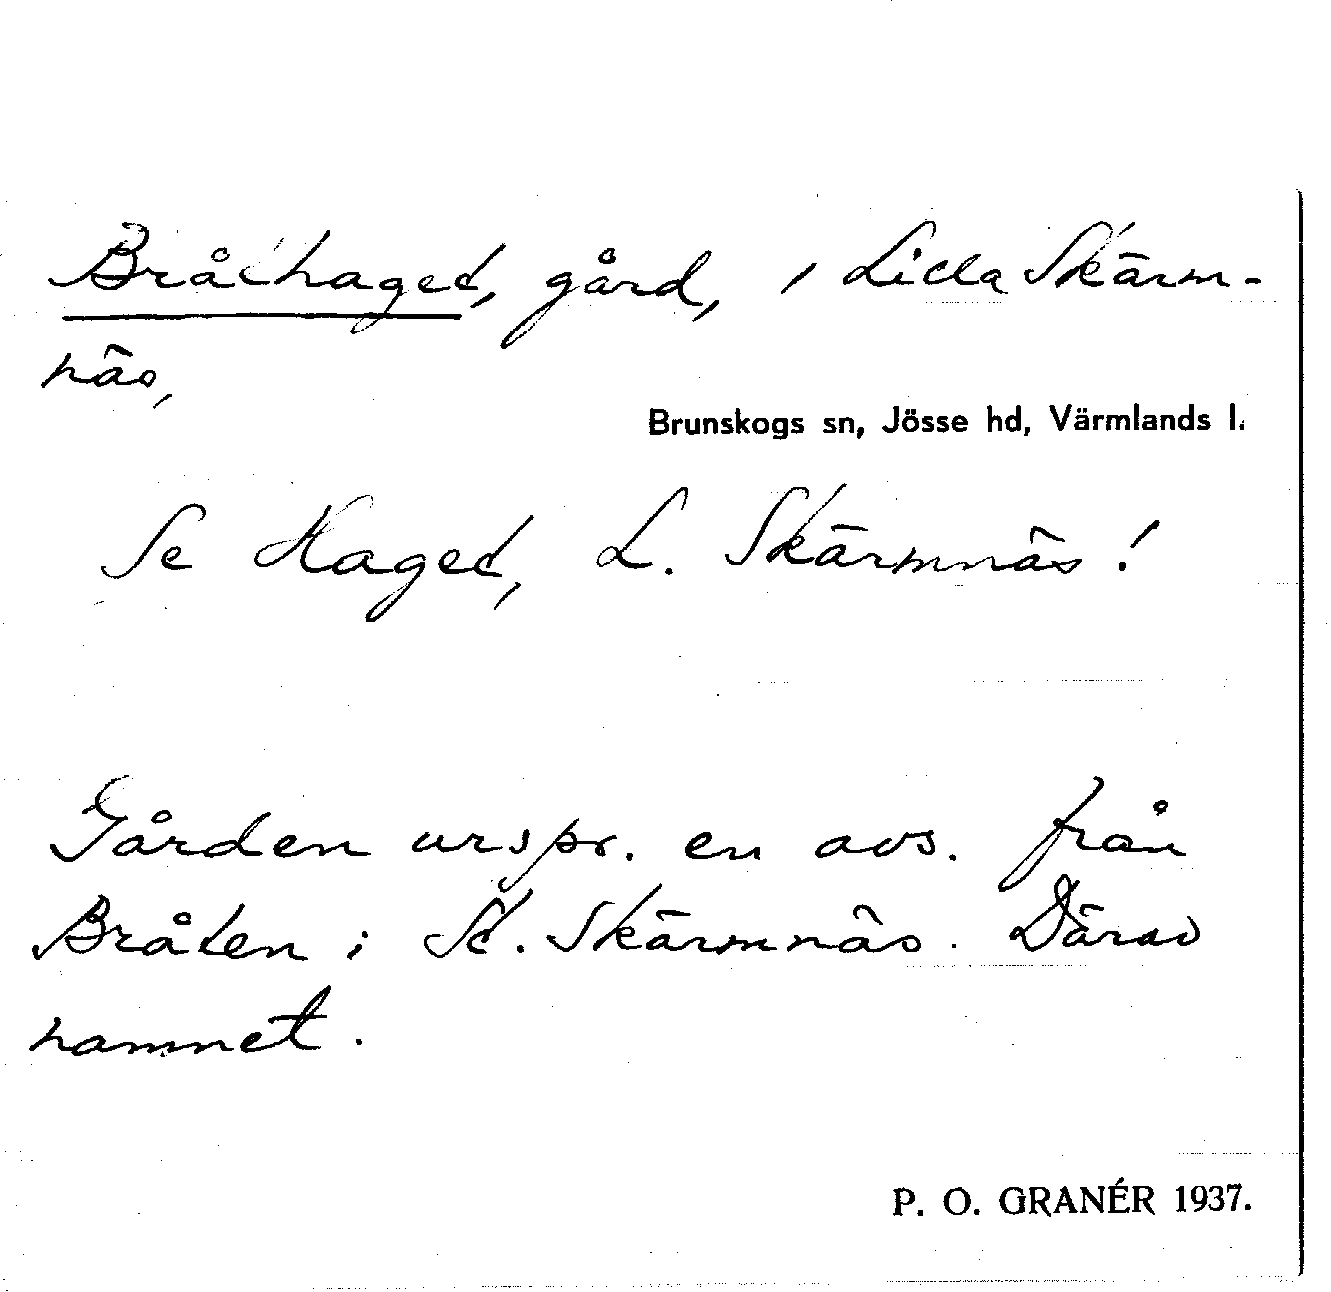 Bråthaget, gård, i Lilla Skärm-
näs,
Brunskogs sn, Jösse hd, Värmlands l.
Se Haget, L. Skärmnäs!
Gården urspr. en avs. från
Bråten i St. Skärmnäs. Därav
namnet.
P. O. GRANÉR 1937.